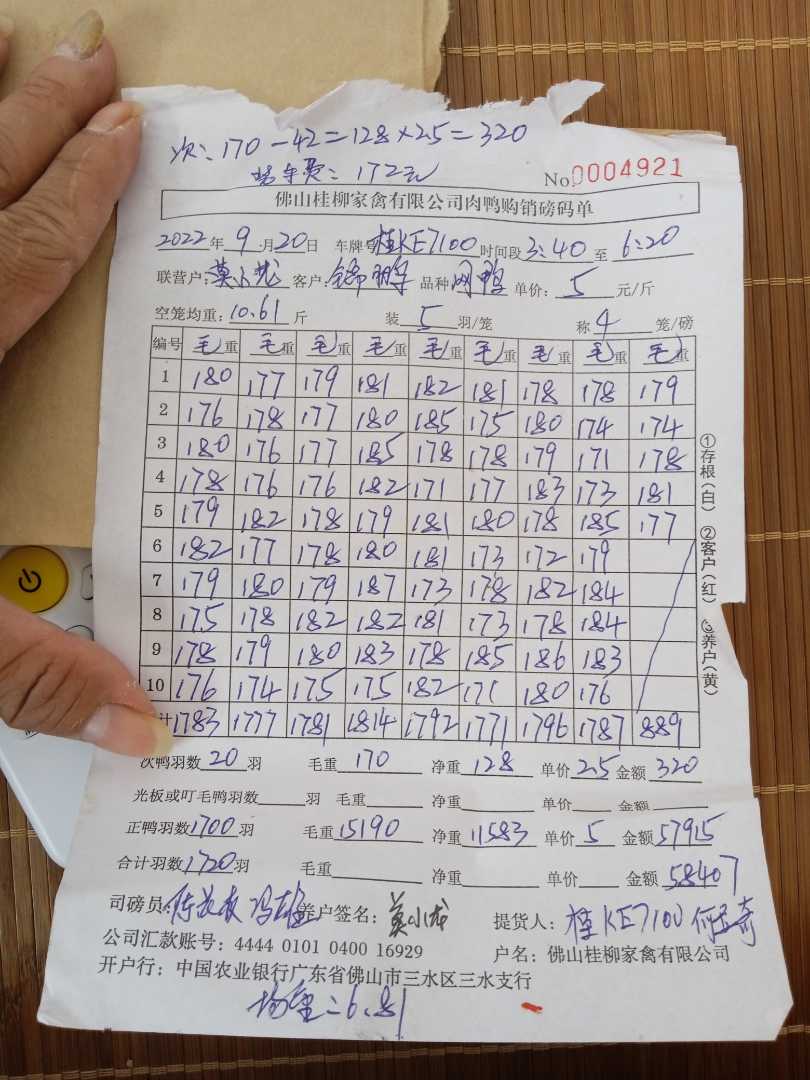 次: 170-42=128×2.5=320
车费: 172元
No 0004921
佛山桂柳家禽有限公司肉鸭购销磅码单
2022年 9 月 20 日 车牌号 桂KE7100 时间段 3:40 至 6:20
联营户: 莫小龙 客户: 品种 鸭 单价: 5 元/斤
空笼均重: 10.61 斤 装 5 羽/笼 称 4 笼/磅
编号 毛重 毛重 毛重 毛重 毛重 毛重 毛重 毛重 毛重
1 180 177 179 181 182 181 178 178 179
2 176 178 177 180 185 175 180 174 174
3 180 176 177 185 178 178 179 171 178
4 178 176 176 182 171 177 183 173 181
5 179 182 178 179 181 180 178 185 177
6 182 177 178 180 181 173 172 179
7 179 180 179 187 173 178 182 184
8 175 178 182 182 181 173 178 184
9 178 179 180 183 178 185 186 183
10 176 174 175 175 182 171 180 176
计 1783 1777 1781 1814 1792 1771 1796 1787 889
①存根(白) ②客户(红) ③养户(黄)
次鸭羽数 20 羽 毛重 170 净重 128 单价 2.5 金额 320
光板或叮毛鸭羽数 羽 毛重 净重 单价 金额
正鸭羽数 1700 羽 毛重 15190 净重 11583 单价 5 金额 57915
合计羽数 1720 羽 毛重 净重 单价 金额 58407
司磅员: 养户签名: 莫小龙 提货人: 桂KE7100
公司汇款账号: 4444 0101 0400 16929 户名: 佛山桂柳家禽有限公司
开户行: 中国农业银行广东省佛山市三水区三水支行
均重: 6.81